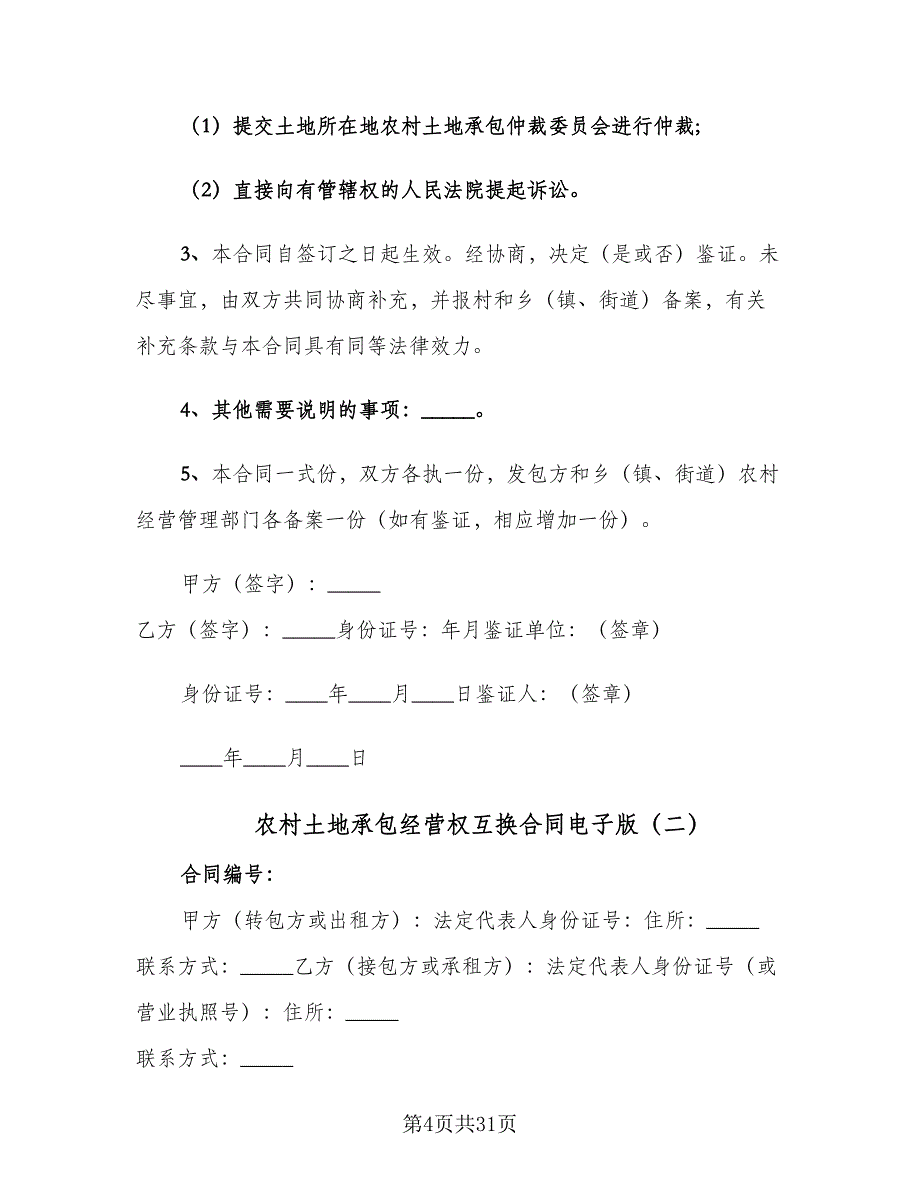 （1）提交土地所在地农村土地承包仲裁委员会进行仲裁;
（2）直接向有管辖权的人民法院提起诉讼。
3、本合同自签订之日起生效。经协商，决定（是或否）鉴证。未
尽事宜，由双方共同协商补充，并报村和乡（镇、街道）备案，有关
补充条款与本合同具有同等法律效力。
4、其他需要说明的事项：_____。
5、本合同一式份，双方各执一份，发包方和乡（镇、街道）农村
经营管理部门各备案一份（如有鉴证，相应增加一份）。
甲方（签字）：_____
乙方（签字）：_____身份证号：年月鉴证单位：（签章）
身份证号：____年____月____日鉴证人：（签章）
____年____月____日
农村土地承包经营权互换合同电子版（二）
合同编号：
甲方（转包方或出租方）：法定代表人身份证号：住所：_____
联系方式：_____乙方（接包方或承租方）：法定代表人身份证号（或
营业执照号）：住所：_____
联系方式：_____
第4页共31页